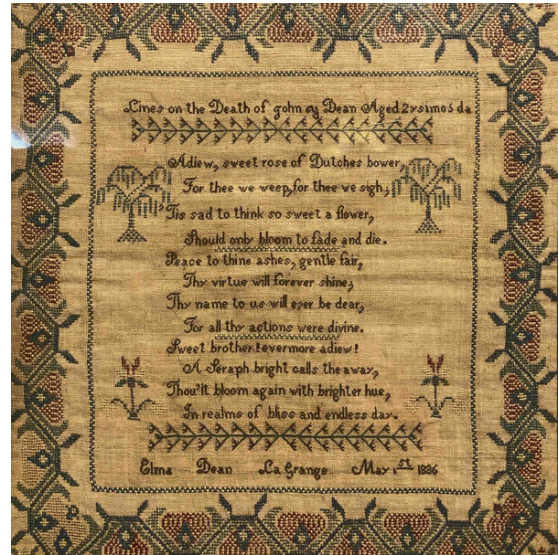 Lines on the Death of John cy Dean Aged 2ys1mo5 da
Adiew, sweet rose of Dutches bower,
For thee we weep, for thee we sigh;
'Tis sad to think so sweet a flower,
Should only bloom to fade and die.
Peace to thine ashes, gentle fair,
Thy virtue will forever shine;
Thy name to us will ever be dear,
For all thy actions were divine.
Sweet brother! evermore adiew!
A Seraph bright calls the away,
Thou'lt bloom again with brighter hue,
In realms of bliss and endless day.
Elma Dean La Grange May 1st 1836